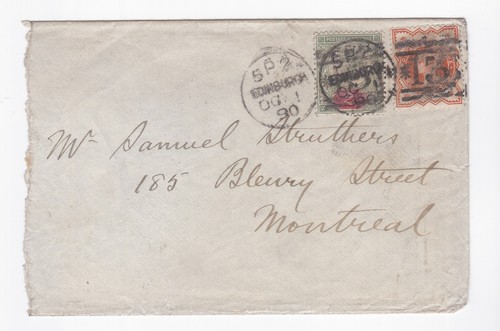 5 P 2
EDINBURGH
OC 1
90
5 P 2
EDINBURGH
OC 1
90
131
Mr Samuel Struthers
185 Bleury Street
Montreal